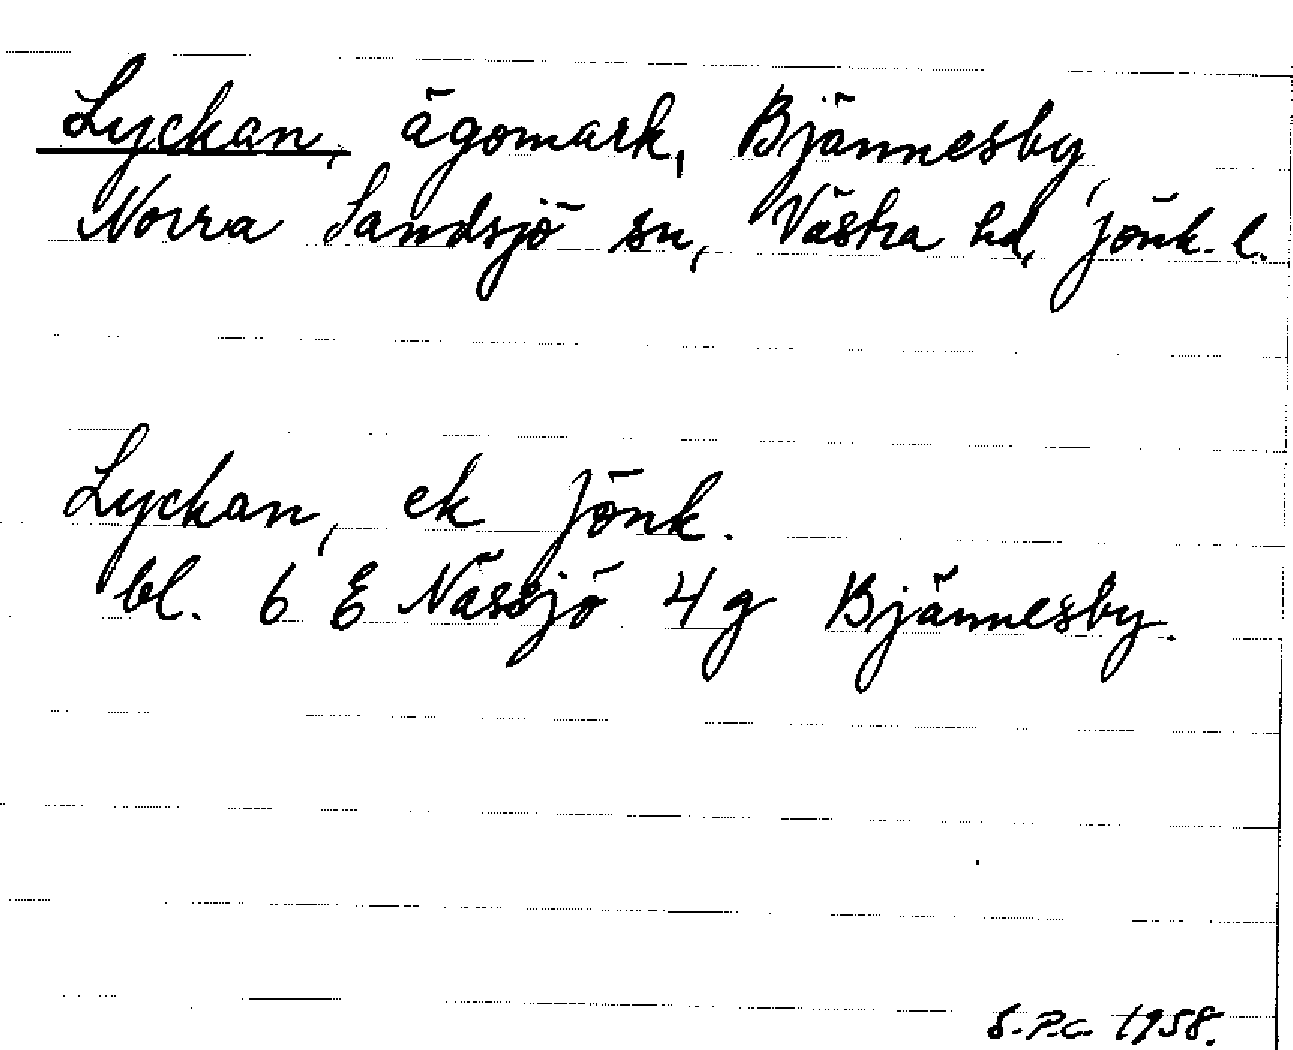 Lyckan, ägomark, Bjännesby,
Norra Sandsjö sn, Västra hd, Jönk. l.
Lyckan, ek Jönk.
bl. 6 E Nässjö 4 g Bjännesby.
S.P.C. 1958.